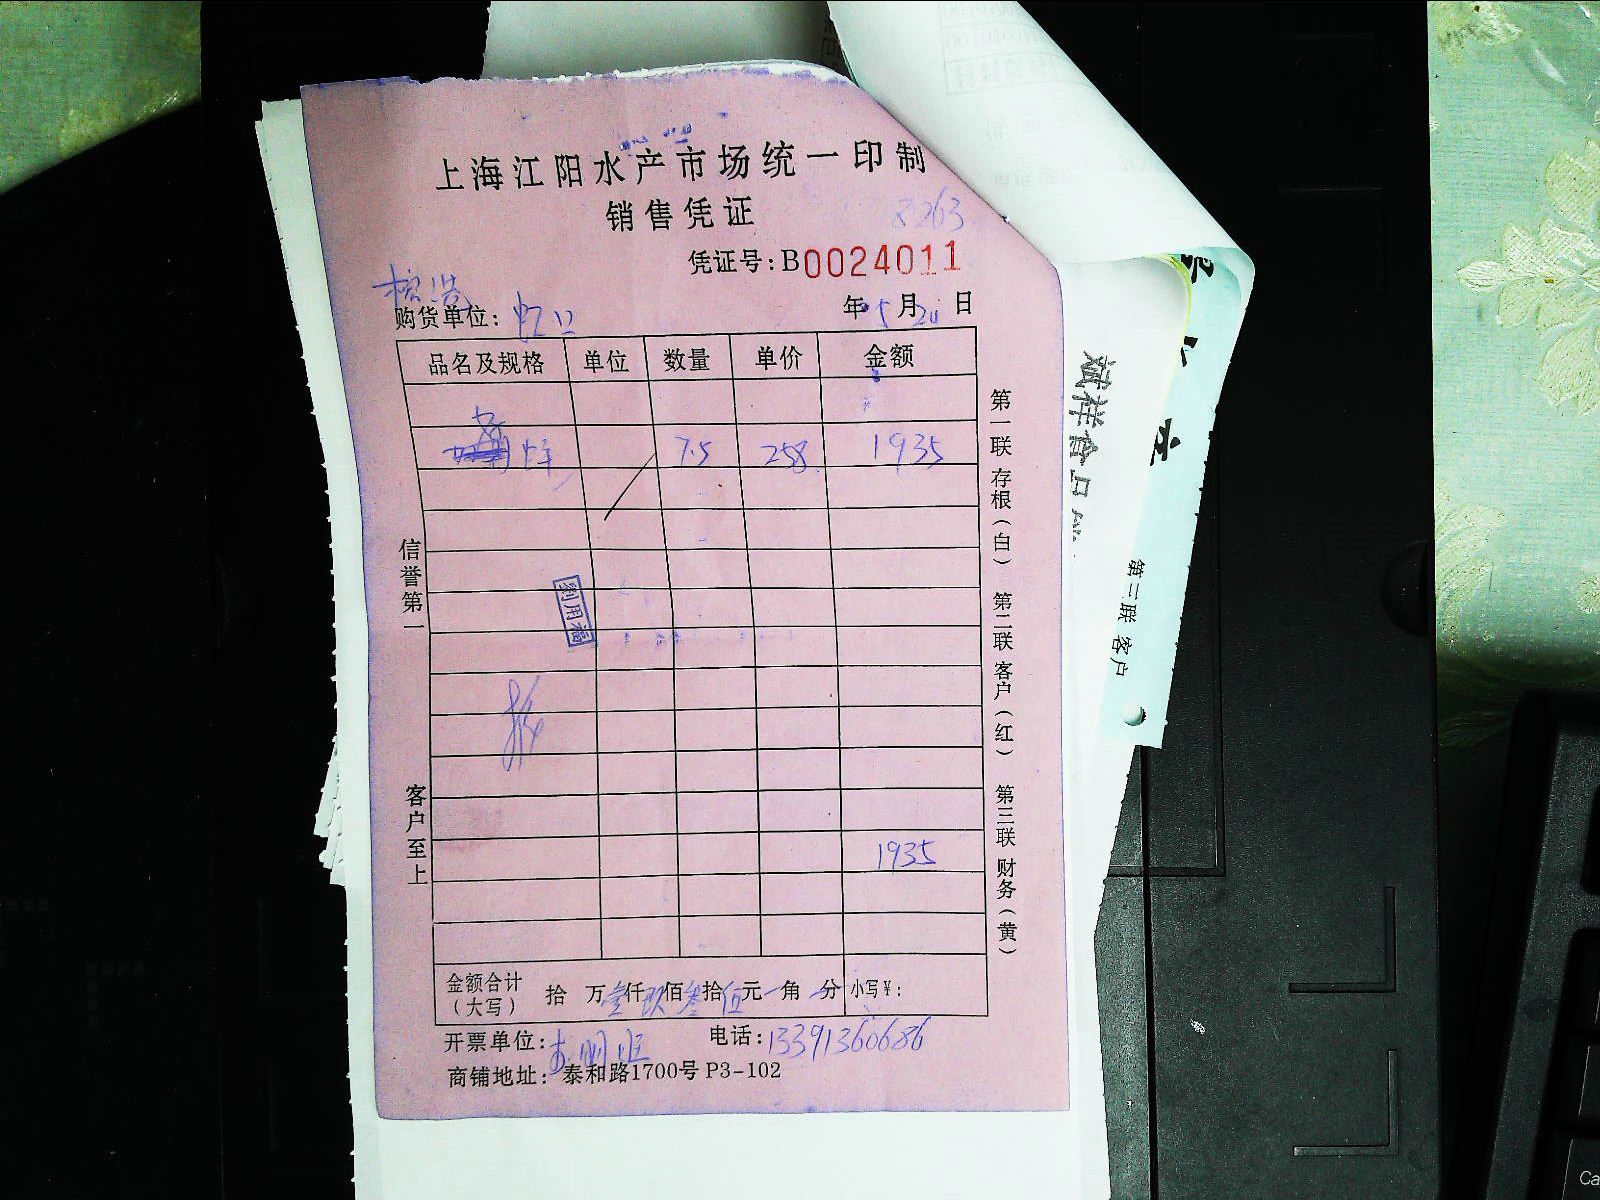 上海江阳水产市场统一印制
销售凭证
8263
凭证号:B0024011
购货单位: 虹口
年 5 月 20 日
品名及规格 单位 数量 单价 金额
7.5 258 1935
1935
金额合计(大写) 拾 万 壹仟 玖佰 叁拾 伍元 角 分 小写¥:
开票单位: 电话:13391360686
商铺地址: 泰和路1700号 P3-102
信誉第一
客户至上
第一联 存根(白) 第二联 客户(红) 第三联 财务(黄)
第二联 客户